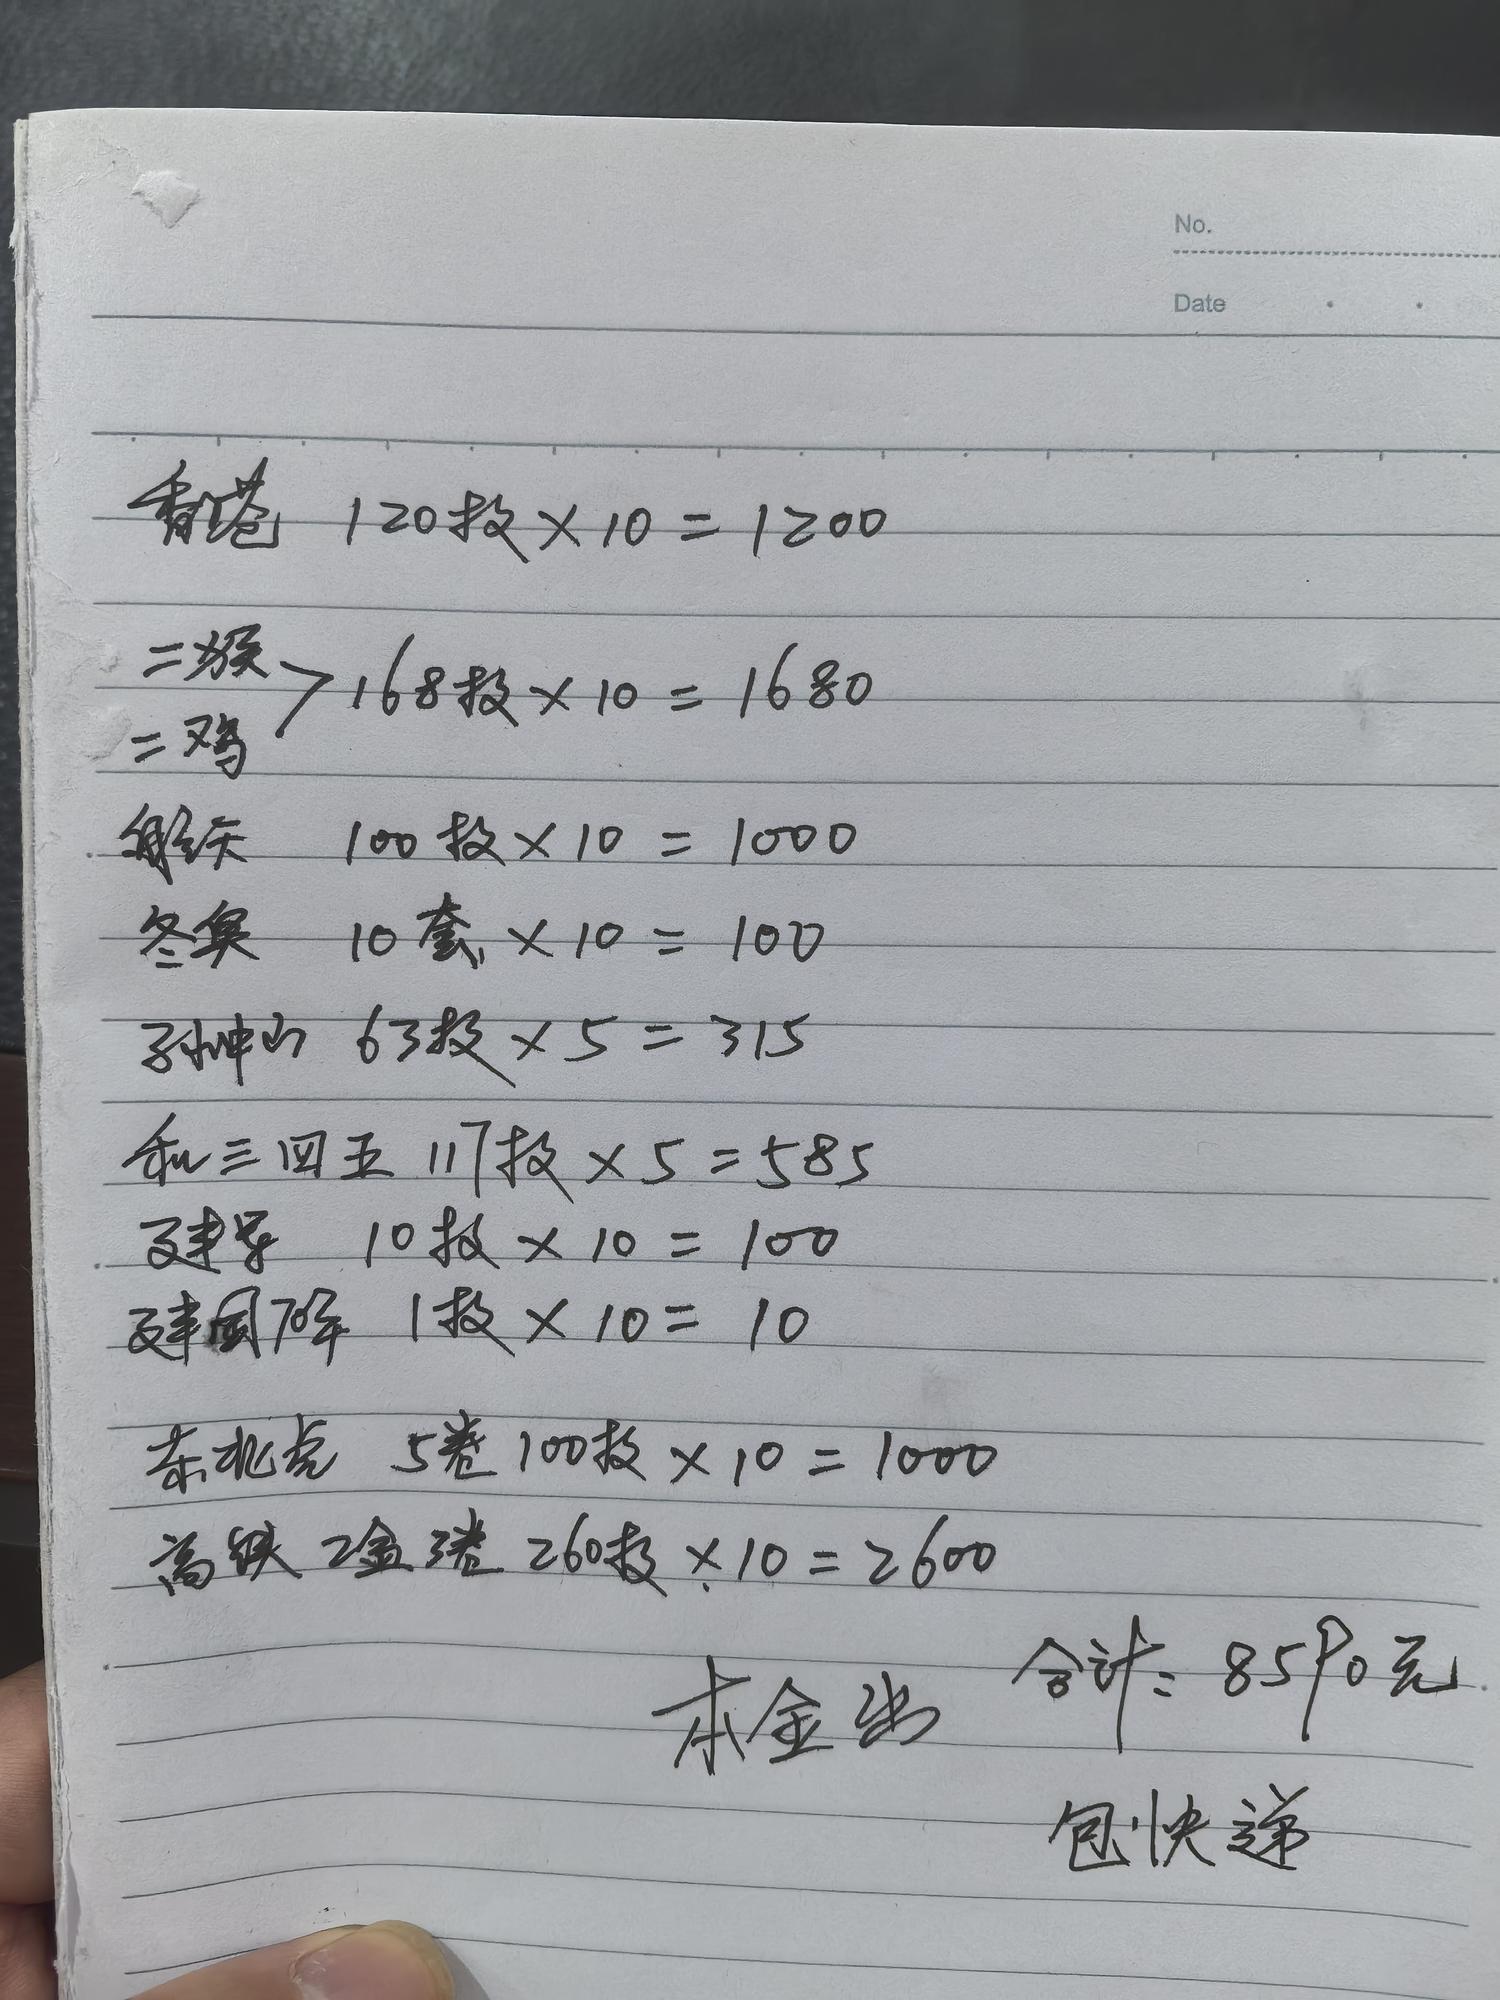 No.
Date
香港 120枚×10=1200
二猴
二鸡 > 168枚×10=1680
航天 100枚×10=1000
冬奥 10套×10=100
孙中山 63枚×5=315
和三四五 117枚×5=585
建军 10枚×10=100
建国70年 1枚×10=10
东北虎 5卷100枚×10=1000
高铁 2盒3卷 260枚×10=2600
合计:8590元
本金出
包快递